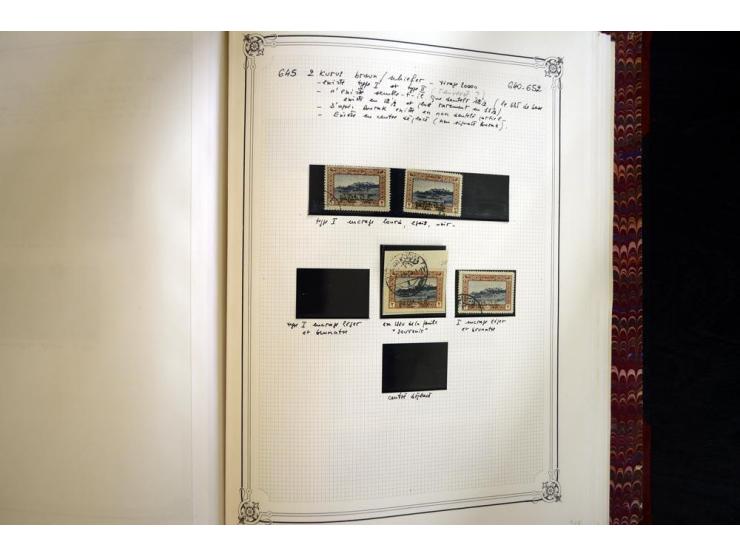 645 2 Kurus brown / schiefer - tirage 20000 640.652
- existe type I et type II
- n'existe semble-t-il que dentelé 12½ ( le 645 de base
existe en 12½ et plus rarement en 11½)
- D'après Burak existe en non dentelé partiel.
- Existe en centre déplacé (non signalé Burak).
type I encrage lourd, épais, noir -
type I encrage léger
et brunatre
en bleu de la feuille
"souvenir"
I encrage léger
et brunatre
centre déplacé